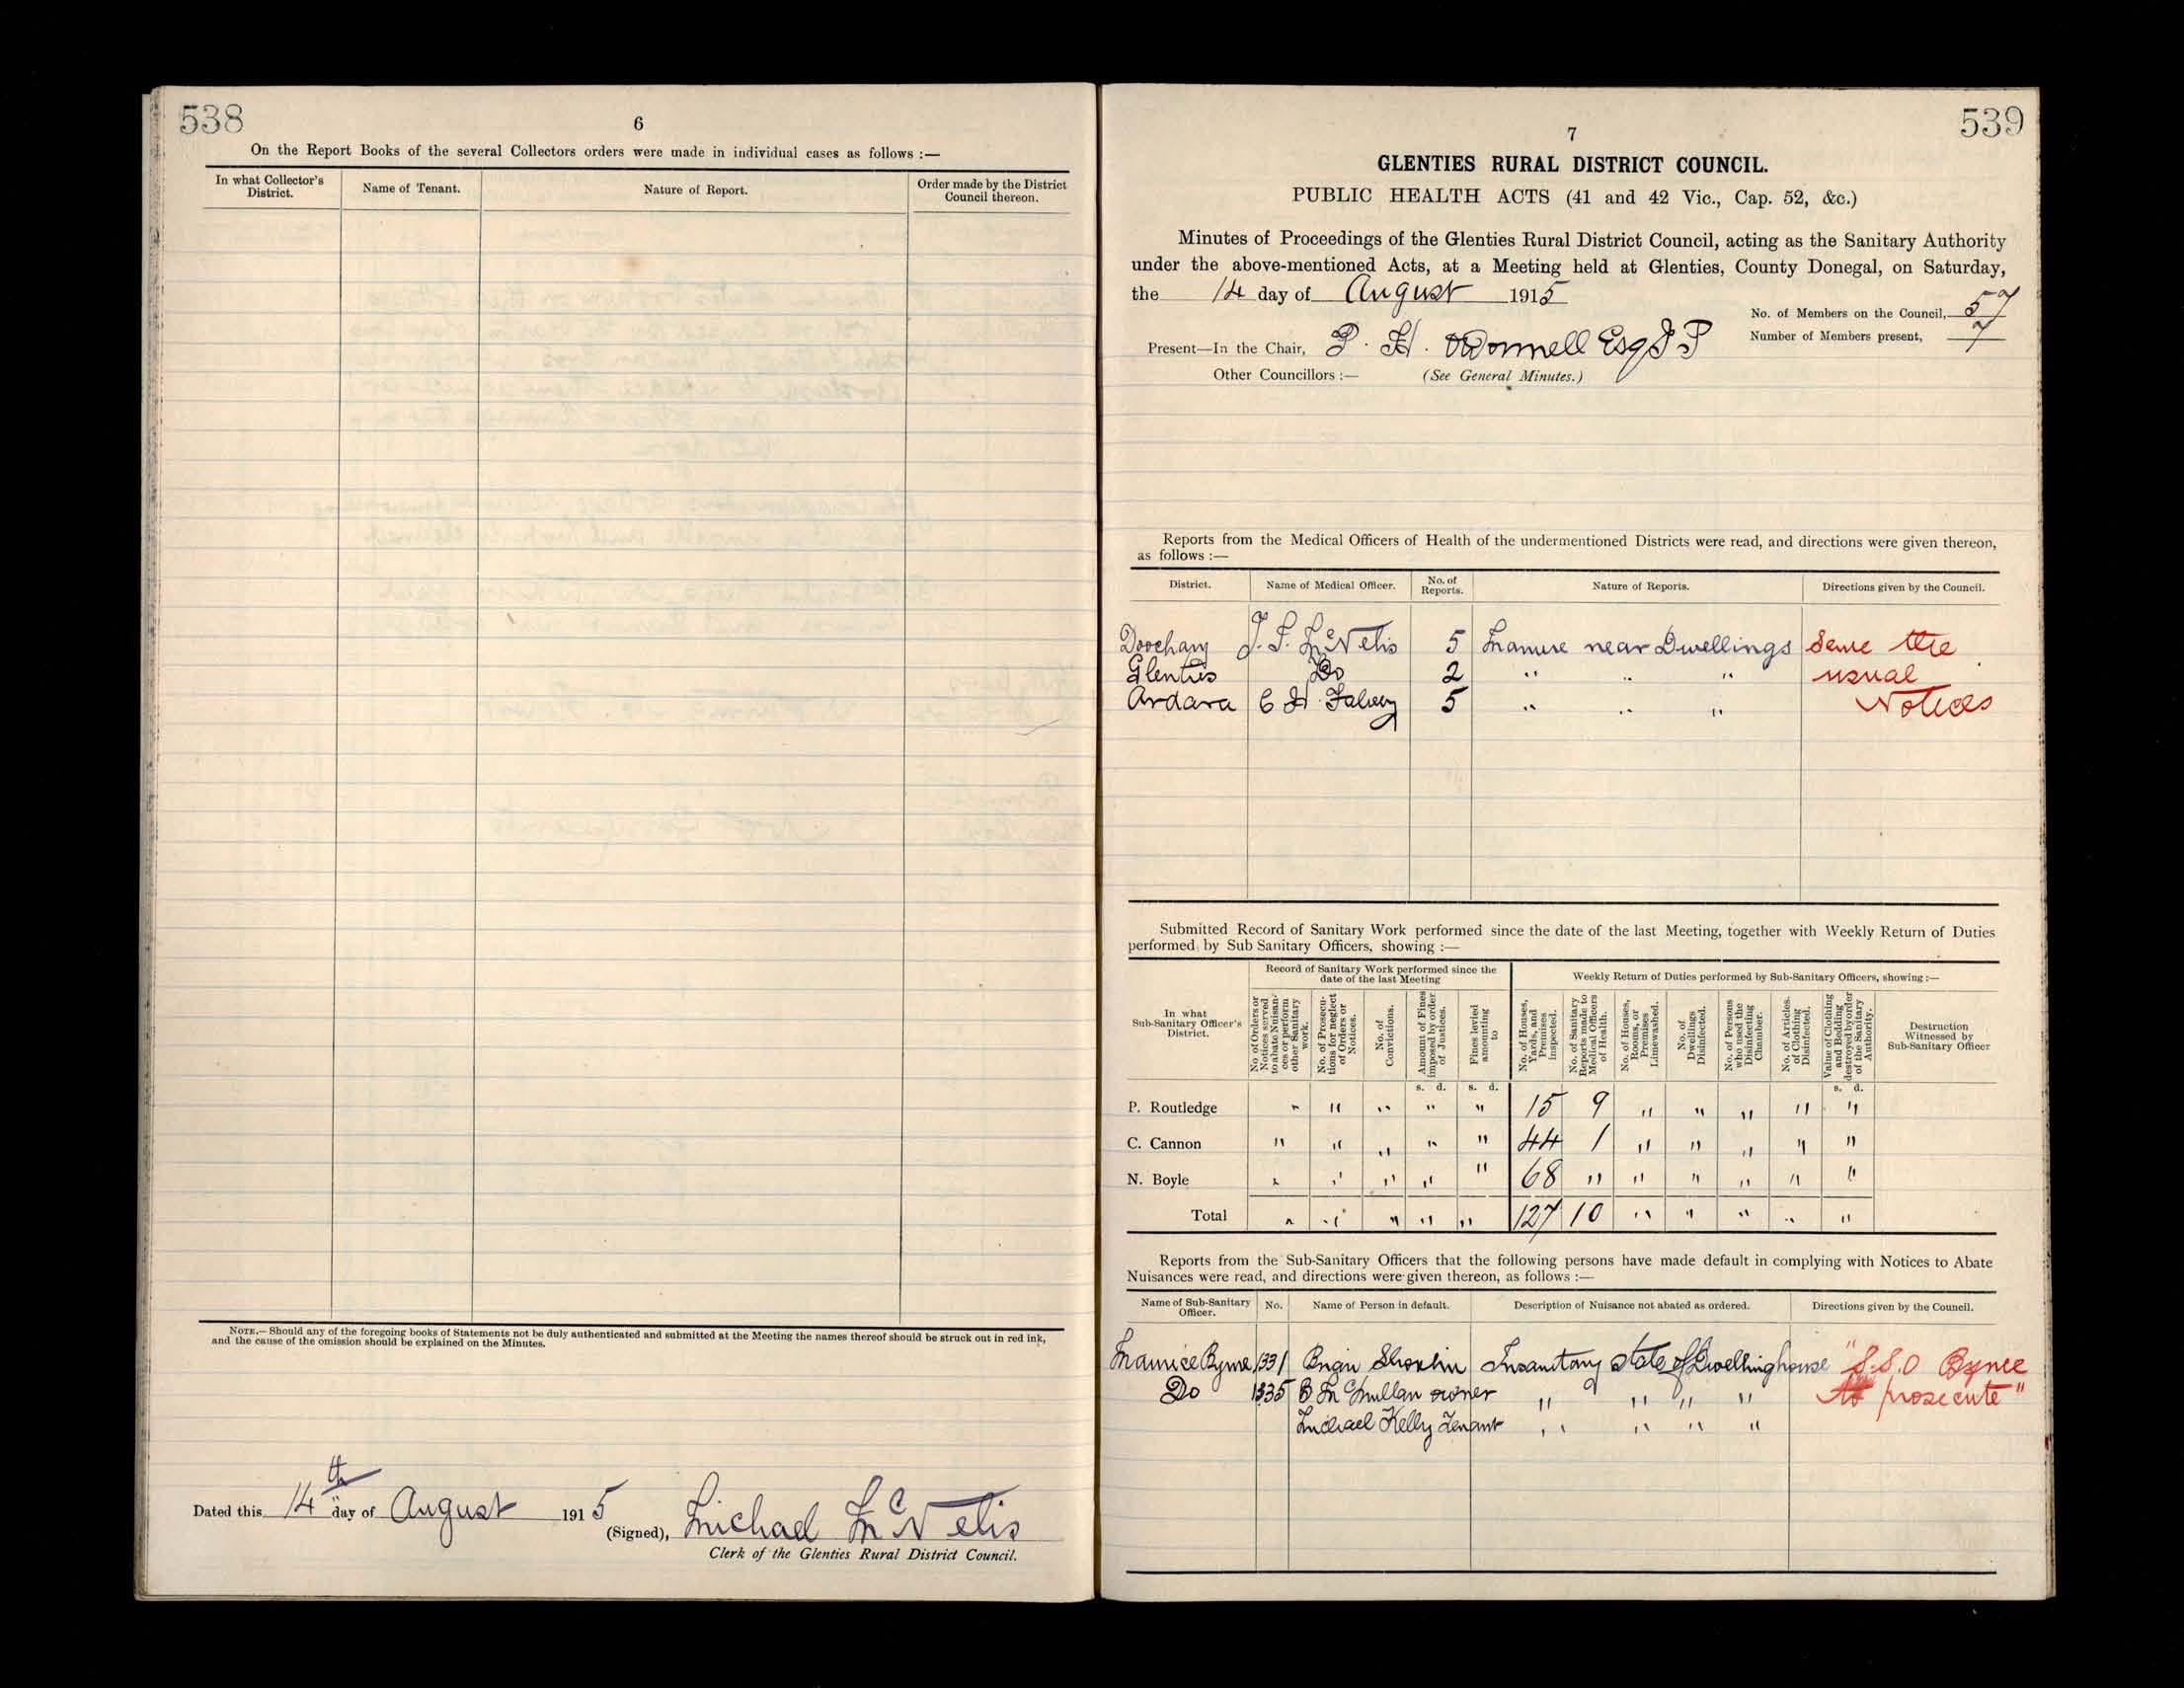 538
6
On the Report Books of the several Collectors orders were made in individual cases as follows :—
In what Collector's District. Name of Tenant. Nature of Report. Order made by the District Council thereon.
NOTE.—Should any of the foregoing books of Statements not be duly authenticated and submitted at the Meeting the names thereof should be struck out in red ink,
and the cause of the omission should be explained on the Minutes.
Dated this 14th day of August 1915
(Signed), Michael McNelis
Clerk of the Glenties Rural District Council.
539
7
GLENTIES RURAL DISTRICT COUNCIL.
PUBLIC HEALTH ACTS (41 and 42 Vic., Cap. 52, &c.)
Minutes of Proceedings of the Glenties Rural District Council, acting as the Sanitary Authority
under the above-mentioned Acts, at a Meeting held at Glenties, County Donegal, on Saturday,
the 14 day of August 1915
No. of Members on the Council, 57
Number of Members present, 7
Present—In the Chair, P. H. O'Donnell Esq J P
Other Councillors :— (See General Minutes.)
Reports from the Medical Officers of Health of the undermentioned Districts were read, and directions were given thereon,
as follows :—
District. Name of Medical Officer. No. of Reports. Nature of Reports. Directions given by the Council.
Doochary J. F. McNelis 5 Manure near Dwellings Serve the
Glenties Do 2 " " " usual
Ardara C H Falvey 5 " " " Notices
Submitted Record of Sanitary Work performed since the date of the last Meeting, together with Weekly Return of Duties
performed by Sub Sanitary Officers, showing :—
In what Sub-Sanitary Officer's District.
Record of Sanitary Work performed since the date of the last Meeting
Weekly Return of Duties performed by Sub-Sanitary Officers, showing :—
No. of Orders or Notices served to abate Nuisances or perform other Sanitary work.
No. of Prosecutions for neglect of Orders or Notices.
No. of Convictions.
Amount of Fines imposed by order of Justices.
Fines levied amounting to
No. of Houses, Yards, and Premises Inspected.
No. of Sanitary Reports made to Medical Officers of Health.
No. of Houses, Rooms, or Premises Limewashed.
No. of Dwellings Disinfected.
No. of Persons who used the Disinfecting Chamber.
No. of Articles of Clothing Disinfected.
Value of Clothing and Bedding destroyed by order of the Sanitary Authority.
Destruction Witnessed by Sub-Sanitary Officer
s. d. s. d. s. d.
P. Routledge " " " " " 15 9 " " " " "
C. Cannon " " " " " 44 1 " " " " "
N. Boyle " " " " " 68 " " " " " "
Total " " " " " 127 10 " " " " "
Reports from the Sub-Sanitary Officers that the following persons have made default in complying with Notices to Abate
Nuisances were read, and directions were given thereon, as follows :—
Name of Sub-Sanitary Officer. No. Name of Person in default. Description of Nuisance not abated as ordered. Directions given by the Council.
Maurice Byrne 1331 Brian Shovlin Insanitary state of Dwellinghouse "S.S.O Byrne
Do 1335 B McMullan owner " " " " to prosecute"
Michael Kelly Tenant " " " "